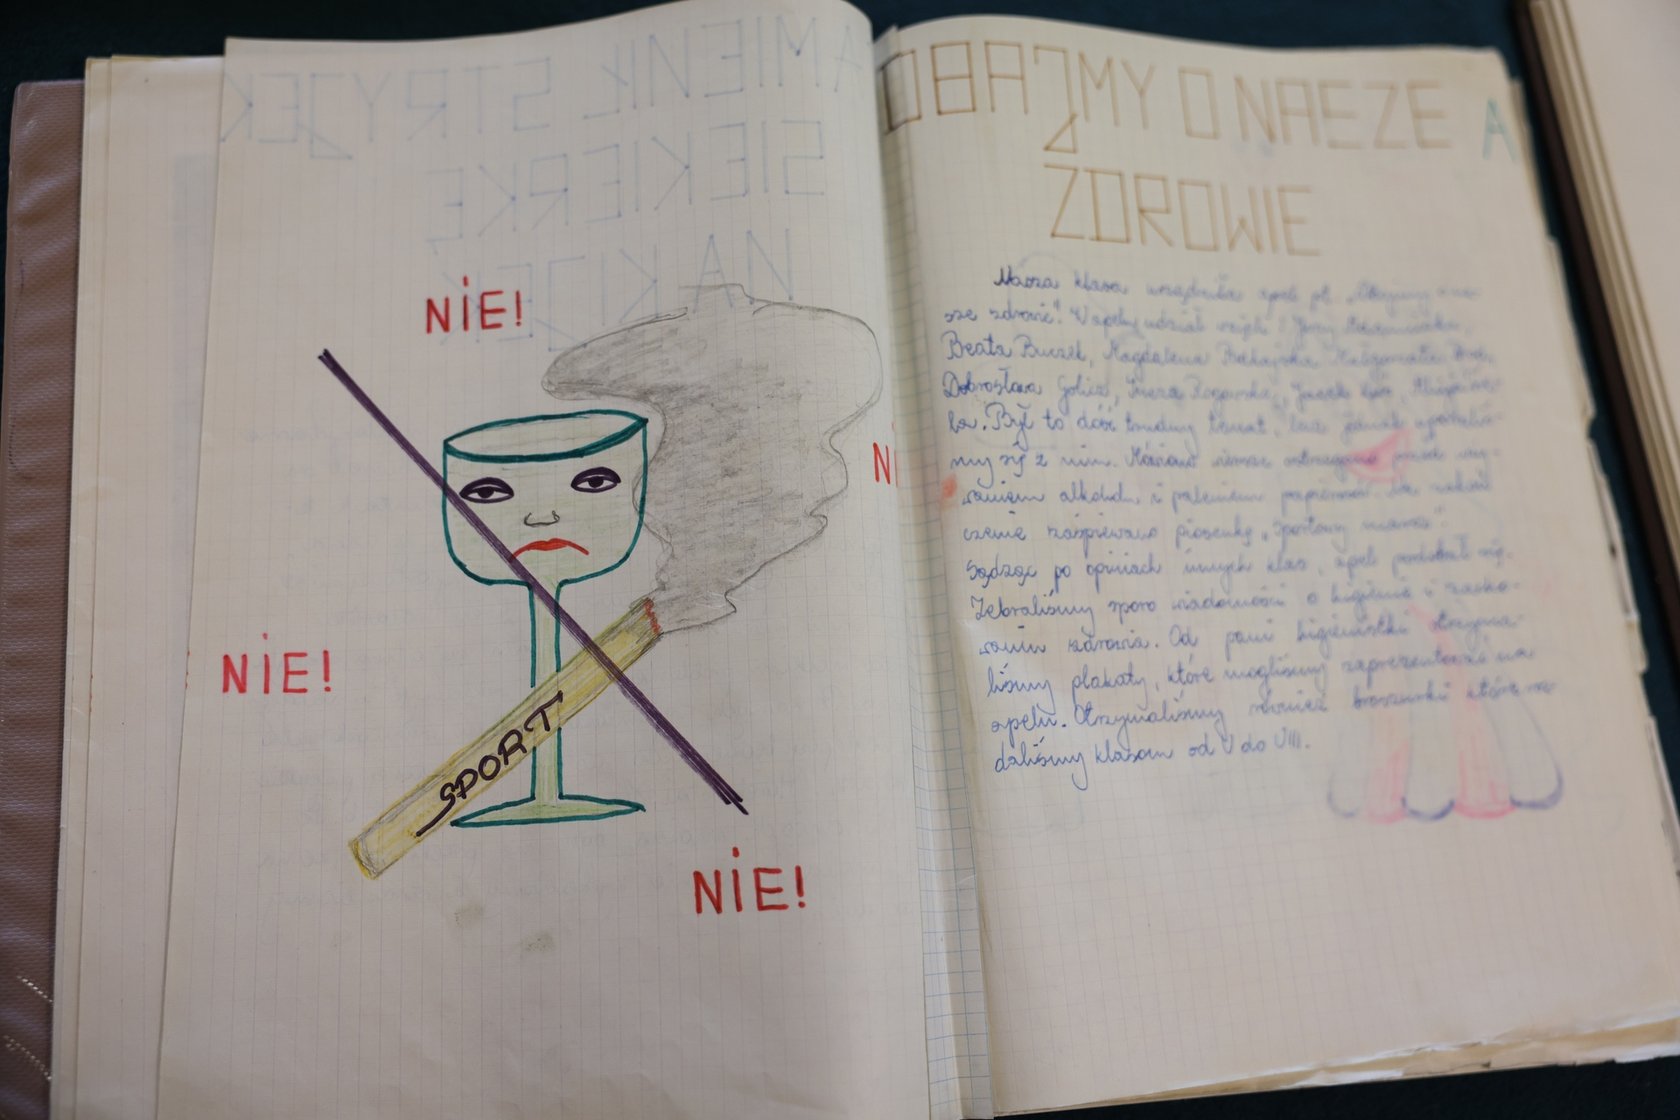 NIE!
NI
NIE!
SPORT
NIE!
ZAMIENIŁ STRYJEK
SIEKIERKĘ
NA KIJEK
DBAJMY O NASZE
ZDROWIE
A
Nasza klasa urządziła apel pt. „Dbajmy o na-
sze zdrowie". W apelu udział wzięli: Jerzy
Beata Buczek, Magdalena
Dobrosława Golisz, Jacek
ła. Był to dość trudny temat, lecz jednak uporaliś-
my się z nim. Mówiono przed uży-
waniem alkoholu i paleniem papierosów. Na zakoń-
czenie zaśpiewano piosenkę „Sportowy marsz".
Sądząc po opiniach innych klas, apel podobał się.
Zebraliśmy sporo wiadomości o higienie i zacho-
waniu zdrowia. Od pani higienistki otrzyma-
liśmy plakaty, które mogliśmy zaprezentować na
apelu. Otrzymaliśmy również broszurki które roz-
daliśmy klasom od V do VIII.